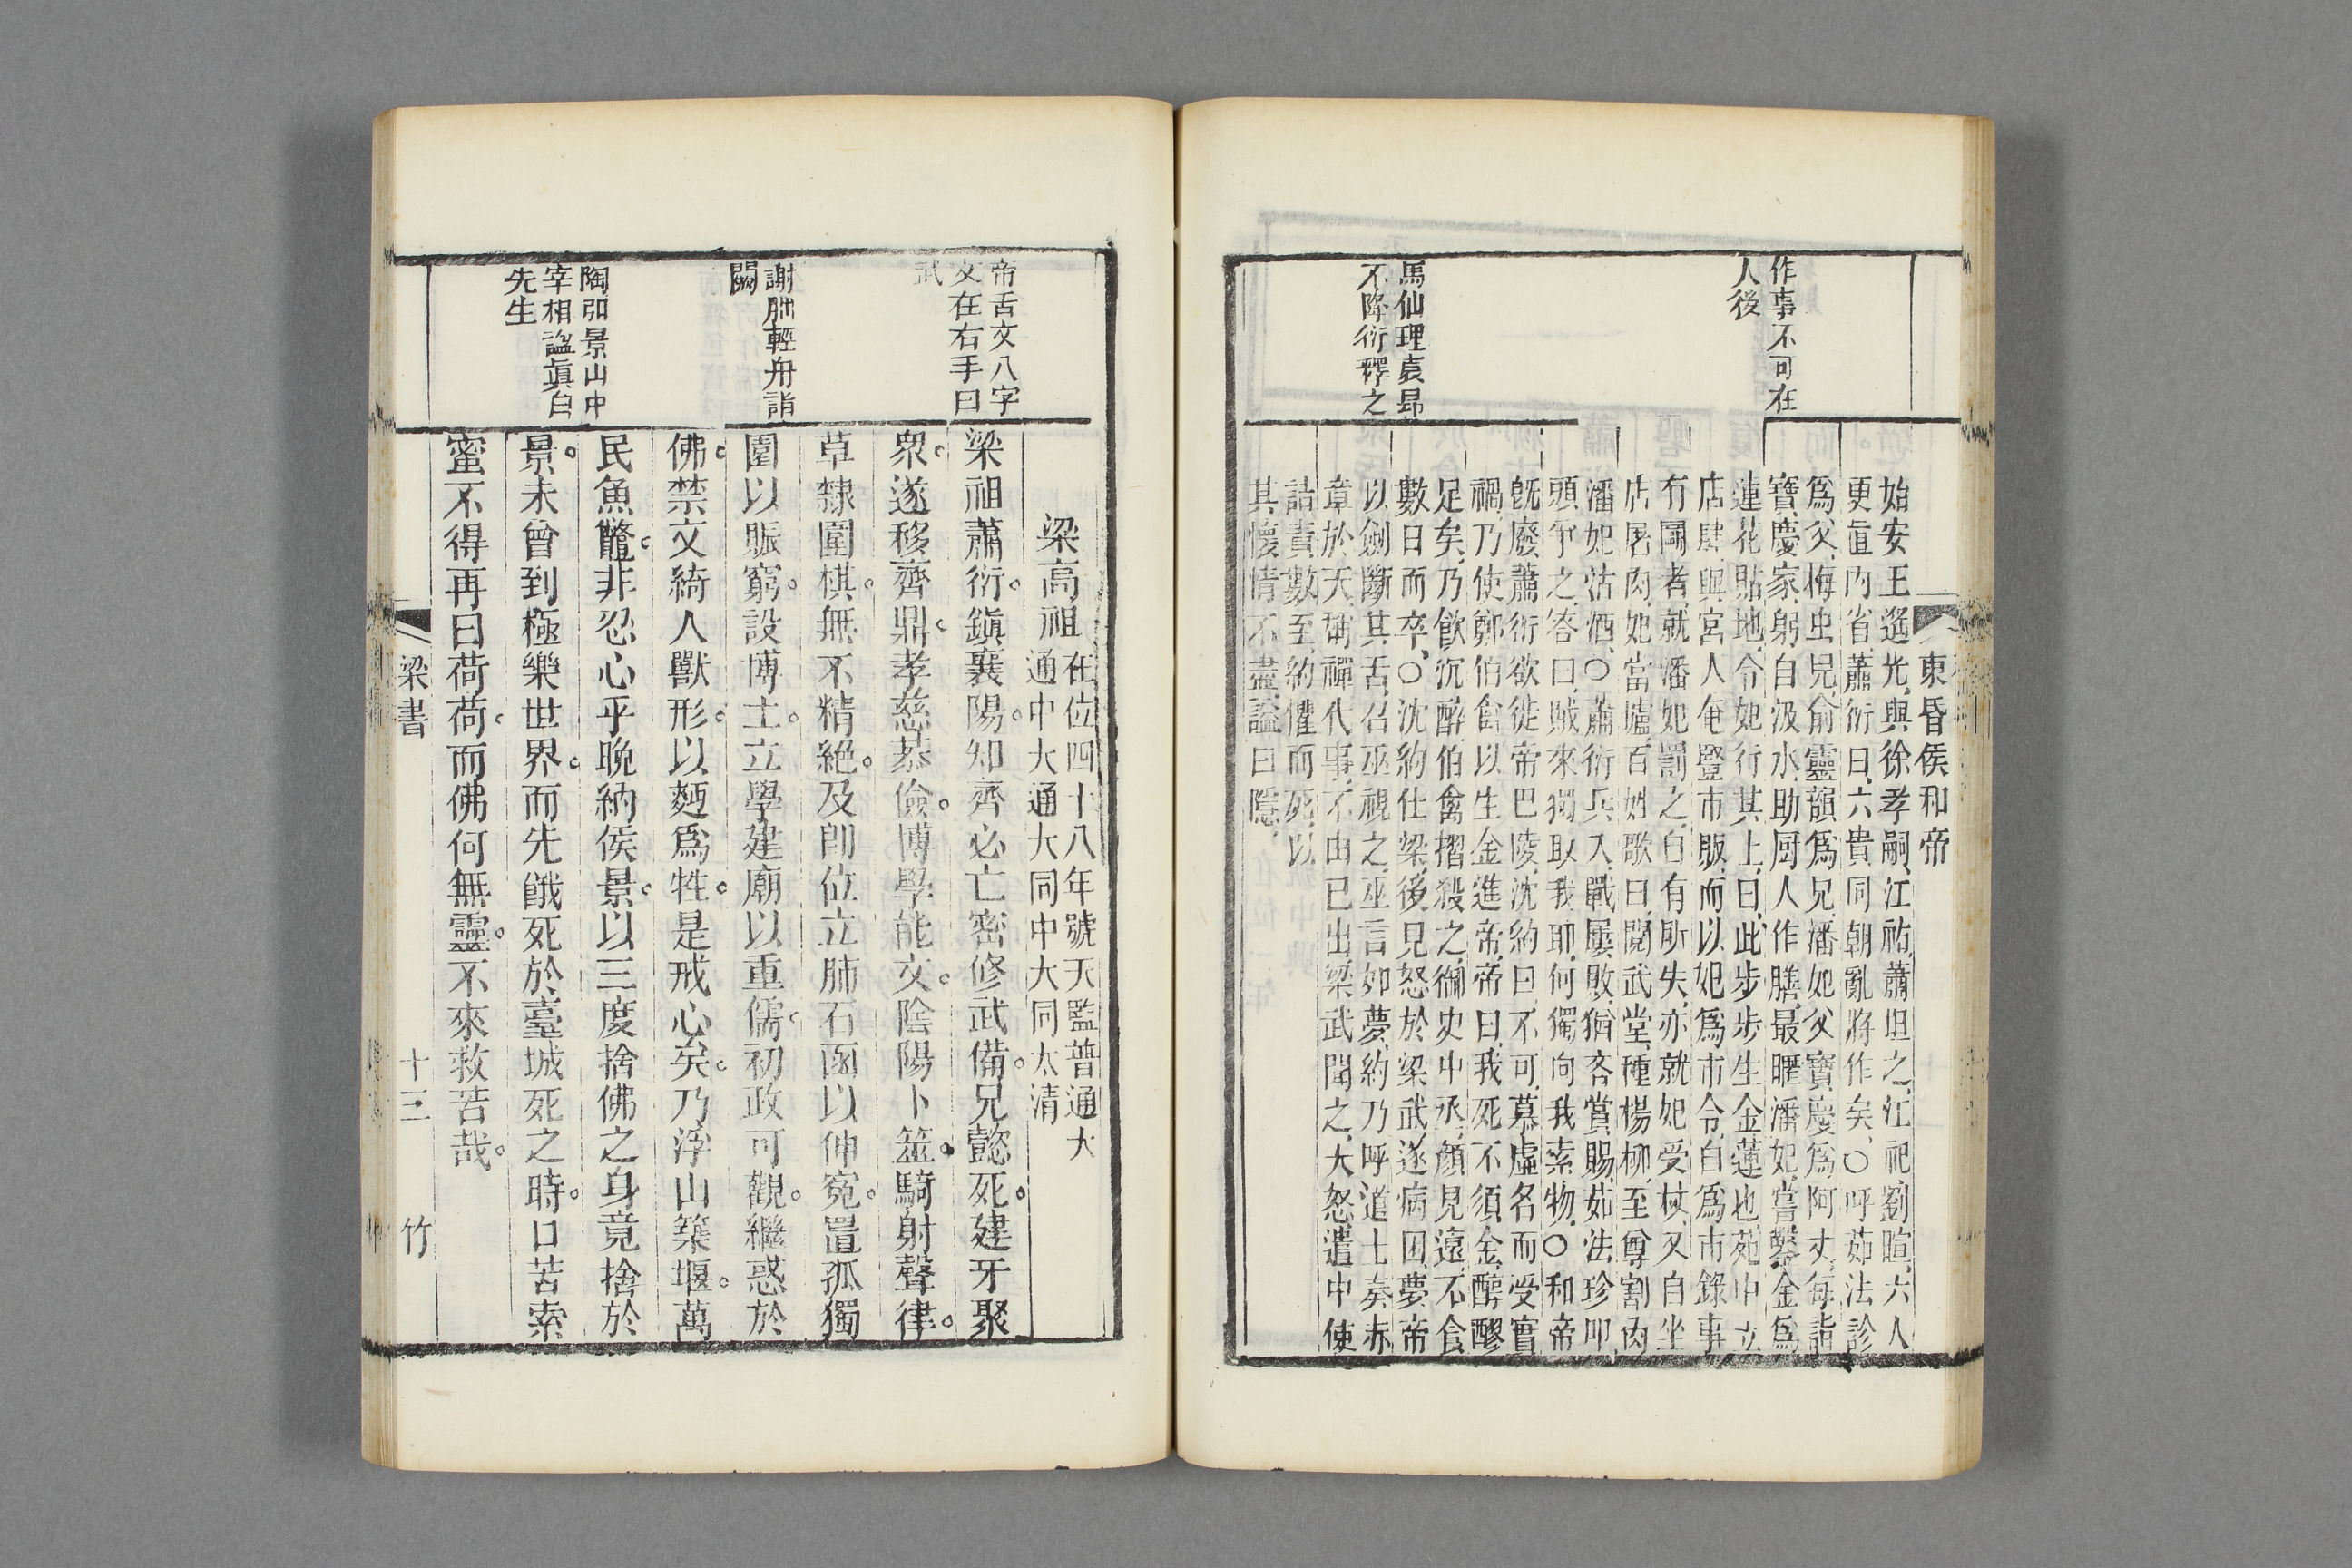 東昏侯和帝
作事不可在
人後
馬仙琕袁昂
不降衍釋之
始安王遙光、與徐孝嗣、江祏、蕭坦之、江祀、劉暄、六人
更直內省、蕭衍曰、六貴同朝、亂將作矣、○呼茹法診
爲父、梅虫兒、俞靈韻爲兄、潘妃父寶慶爲阿丈、每詣
寶慶家、躬自汲水、助厨人作膳、最暱潘妃、嘗鑿金爲
蓮花貼地、令妃行其上、曰、此步步生金蓮也、苑中立
店肆、與宮人奄豎市販、而以妃爲市令、自爲市錄事、
有鬭者、就潘妃罰之、自有所失、亦就妃受杖、又自坐
店屠肉、妃當壚、百姓歌曰、閱武堂、種楊柳、至尊割肉
潘妃沽酒、○蕭衍兵入、戰屢敗、猶吝賞賜、茹法珍叩
頭爭之、答曰、賊來獨取我耶、何獨向我索物、○和帝
旣廢、蕭衍欲徙帝巴陵、沈約曰、不可慕虛名而受實
禍、乃使鄭伯禽以生金進帝、帝曰、我死不須金、醇醪
足矣、乃飮沉醉、伯禽摺殺之、御史中丞顏見遠、不食
數日而卒、○沈約仕梁、後見怒於梁武、遂病困、夢帝
以劍斷其舌、召巫視之、巫言如夢、約乃呼道士奏赤
章於天、稱禪代事、不由已出、梁武聞之、大怒、遣中使
詰責數至、約懼而死、以
其懷情不盡、諡曰隱、
帝舌文八字
文在右手曰
武
謝朏輕舟詣
闕
陶弘景山中
宰相諡眞白
先生
梁高祖
在位四十八年號天監普通大
通中大通大同中大同太清
梁祖蕭衍。鎭襄陽。知齊必亡密修武備。兄懿死。建牙聚
衆。遂移齊鼎。孝慈恭儉。博學能文。陰陽卜筮。騎射聲律。
草隸圍棋。無不精絕。及卽位立肺石函以伸寃。置孤獨
園以賑窮。設博士。立學建廟以重儒。初政可觀。繼惑於
佛。禁文綺人獸形。以麪爲牲。是戒心矣。乃浮山築堰。萬
民魚鼈。非忍心乎晩納侯景。以三度捨佛之身竟捨於
景。未曾到極樂世界。而先餓死於臺城死之時。口苦索
蜜不得再曰荷荷。而佛何無靈。不來救苦哉。
梁書
十三
竹